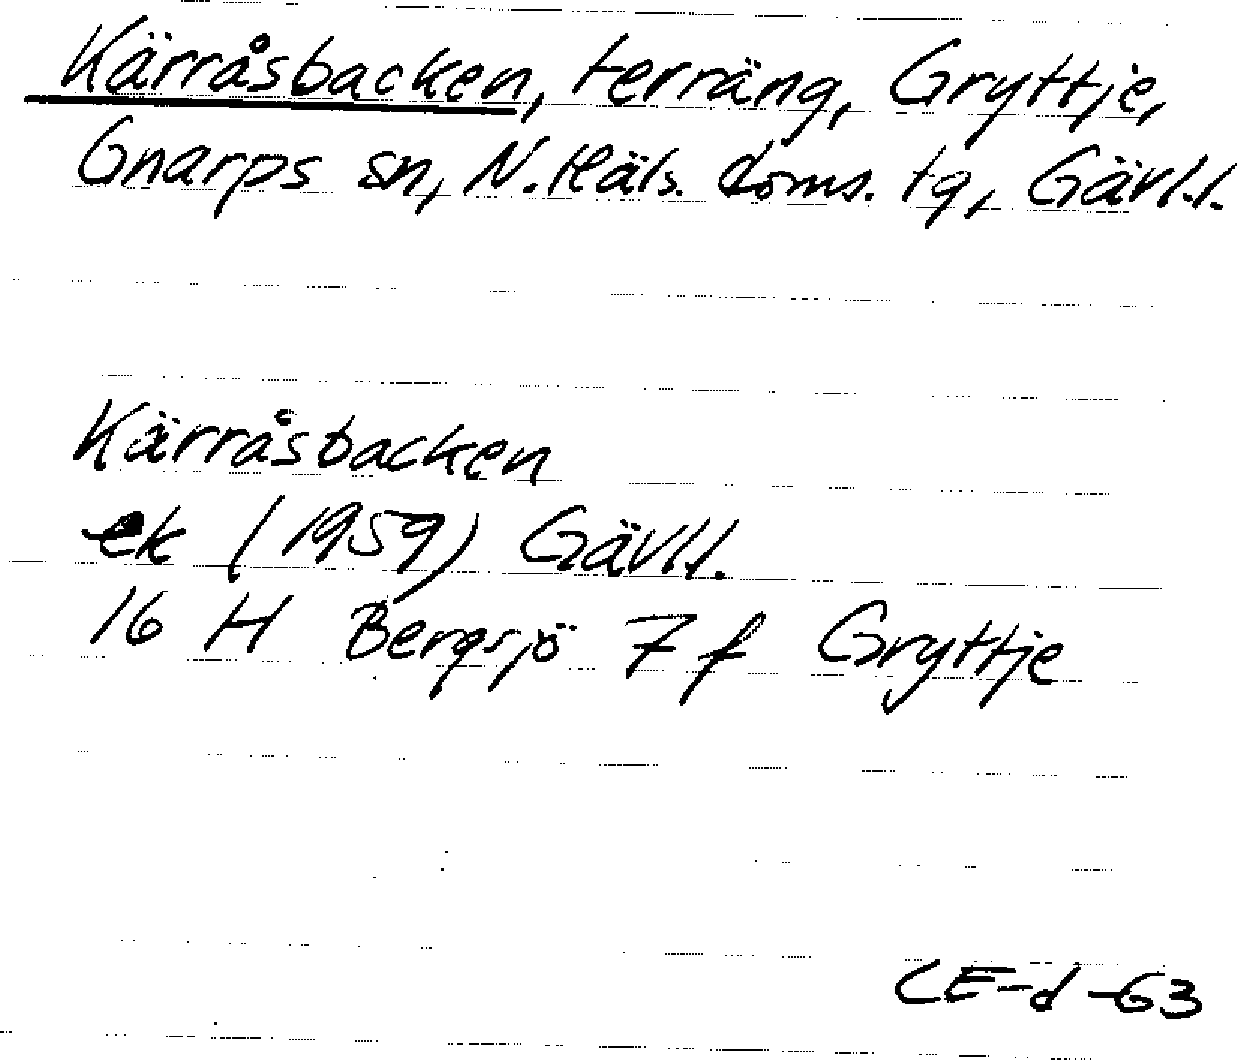 Kärråsbacken, terräng, Gryttje,
Gnarps sn, N. Häls. doms. tg, Gävl.l.
Kärråsbacken
ek (1959) Gävl.l.
16 H Bergsjö 7 f Gryttje
CE-d -63